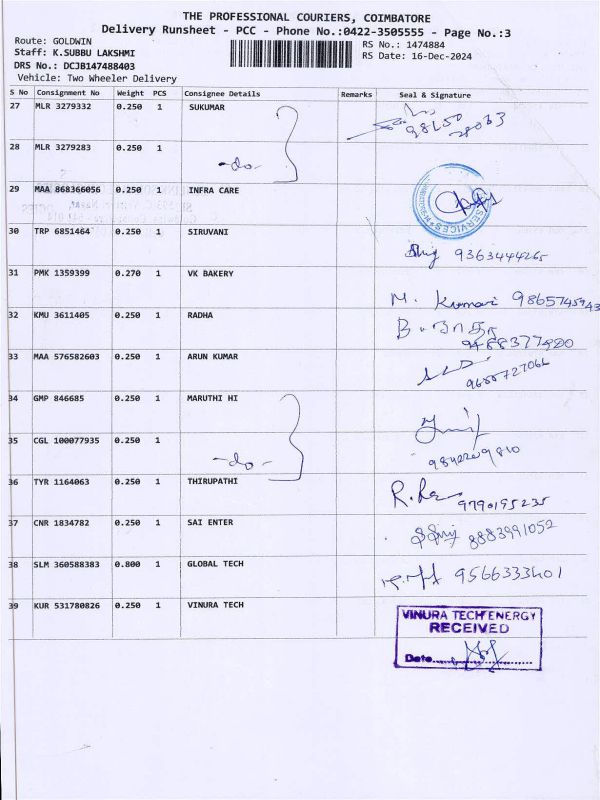 THE PROFESSIONAL COURIERS, COIMBATORE
Delivery Runsheet - PCC - Phone No.:0422-3505555 - Page No.:3
Route: GOLDWIN
RS No.: 1474884
Staff: K.SUBBU LAKSHMI
RS Date: 16-Dec-2024
DRS No.: DCJB147488403
Vehicle: Two Wheeler Delivery
S No Consignment No Weight PCS Consignee Details Remarks Seal & Signature
27 MLR 3279332 0.250 1 SUKUMAR
28 MLR 3279283 0.250 1 -do-
29 MAA 868366056 0.250 1 INFRA CARE SERVICES
30 TRP 6851464 0.250 1 SIRUVANI 9363444265
31 PMK 1359399 0.270 1 VK BAKERY M. Kumari 9865745943
32 KMU 3611405 0.250 1 RADHA B. ராதா 9488377920
33 MAA 576582603 0.250 1 ARUN KUMAR 9688727066
34 GMP 846685 0.250 1 MARUTHI HI
35 CGL 100077935 0.250 1 -do- 9842209810
36 TYR 1164063 0.250 1 THIRUPATHI 9790195235
37 CNR 1834782 0.250 1 SAI ENTER 8883991052
38 SLM 360588383 0.800 1 GLOBAL TECH 9566333401
39 KUR 531780826 0.250 1 VINURA TECH
VINURA TECH ENERGY
RECEIVED
Date